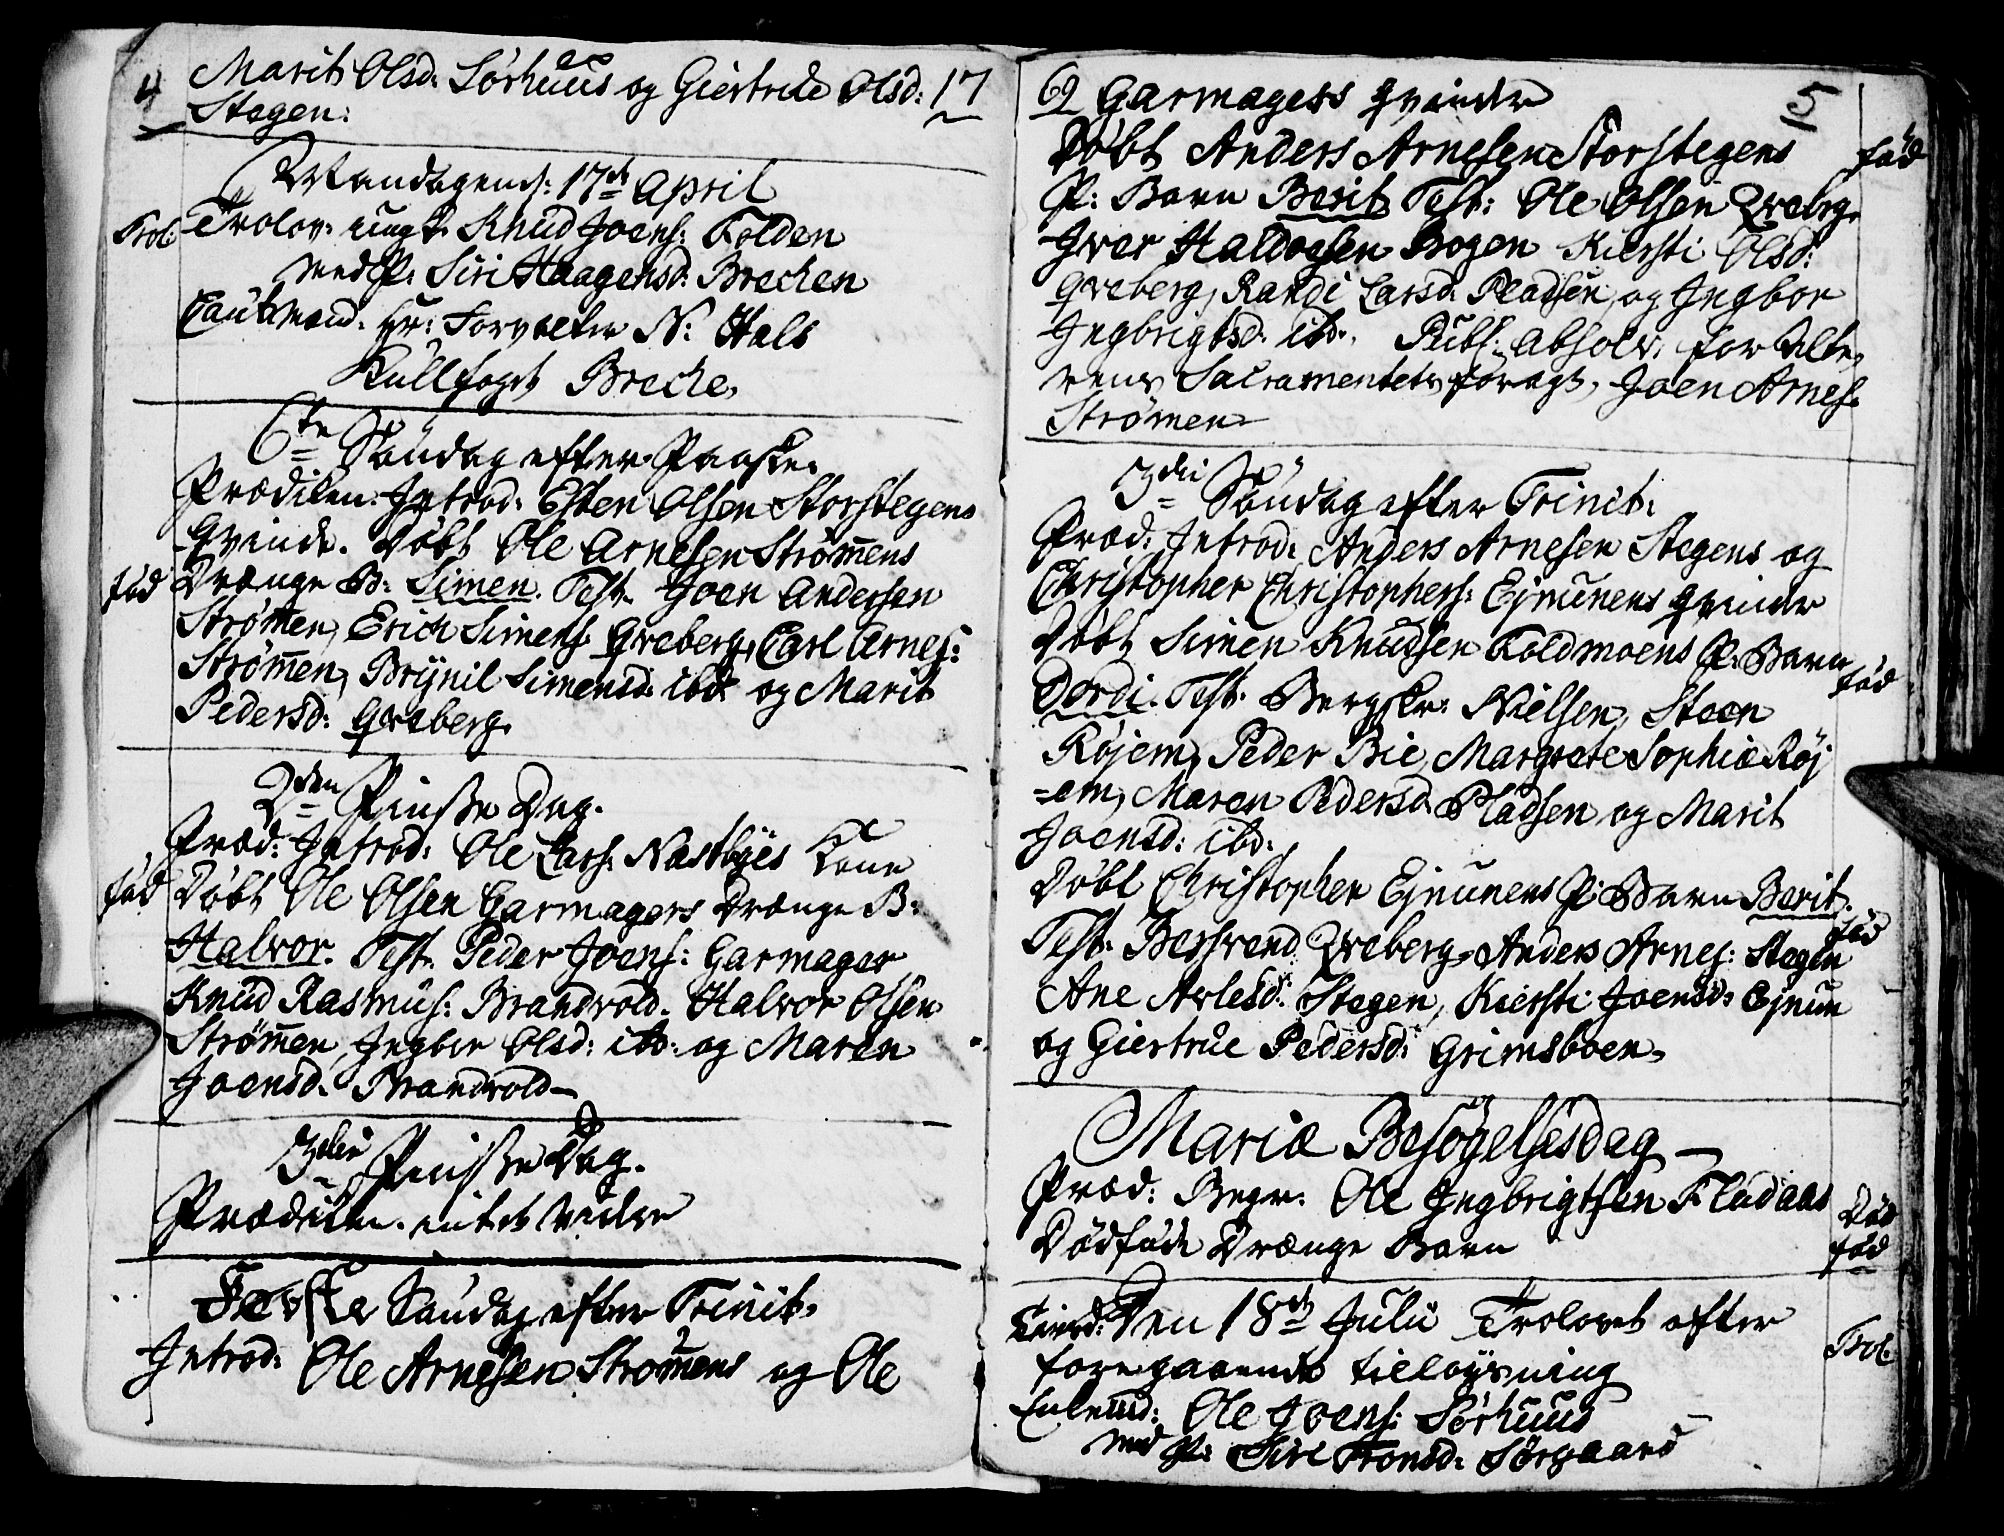 4
Marit Olsd: Sørhuus og Giertrude Olsd: 17
Stegen:
Mandagend: 17de April
Trol: Trolov. ungk. Knud Joens: Folden
med P: Siri Haagensd: Brechen
Cautmænd: Hr: Forvalter N: Hals
Kullfogt Breche,
6te Søndag efter Paaske.
Prædiken. Introd: Esten Olsen Storstegens
Qvinde. Døbt Ole Arnesen Strømens
fød Drænge B: Simen. Test. Joen Andersen
Strømen, Erich Simens Qveberg, Carl Arnes:
Strømen, Brynil Simensd: ibd: og Marit
Pedersd: Qveberg.
2den Pintse Dag.
Præd: Introd: Ole Lars: Nastbyes Kone
fød Døbt Ole Olsen Garmagers Drænge B:
Halvor. Test. Peder Joens: Garmager
Knud Rasmus: Brandvold. Halvor Olsen
Strømen, Ingbor Olsd: ibd: og Maren
Joensd. Brandvold
3die Pintse Dag.
Prædiken. intet videre
Første Søndag efter Trinit.
Introd: Ole Arnesen Stromens og Ole
5
Garmagers Qvinder
Døbt Anders Arnesen Storstegens fød
P: Barn Berit Test: Ole Olsen Qveberg
Iver Haldorsen Bogen Kiersti Olsd:
Qveberg, Randi Larsd. Pladsen, og Ingbor
Ingbrigtsd. ibd. Publ: Absolv: for Alte,
rens Sacramentets foragt, Joen Arnes.
Strømen
3die Søndag efter Trinit:
Præd: Introd: Anders Arnesen Stegens og
Christopher Christophers: Ejnunens Qvinder
Døbt Simen Knudsen Foldmoens P: Barn fød
Dordi. Test. Bergskr. Nielsen, Steen
Røjem, Peder Bie, Margrete Sophie Røj
-em, Maren Pedersd. Pladsen og Marit
Joensd: ibd.
Døbt Christopher Ejnunens P: Barn Berit. fød
Test. Berfvend Qveberg, Anders Arnes: Stegen
Ane Arlesd: Stegen, Kiersti Joensd: Ejnun
og Giertrue Pedersd: Grimsboen.
Mariæ Besøgelsesdag
Præd: Begr. Ole Ingbrigtsen Fladaas Død
Dødfødt Drænge Barn fød
Den 18de Julii Trolovet efter Trol:
foregaaende tillysning
Enkemd: Ole Joens: Sørhuus
med P: Siri Tronsd. Sørgaard